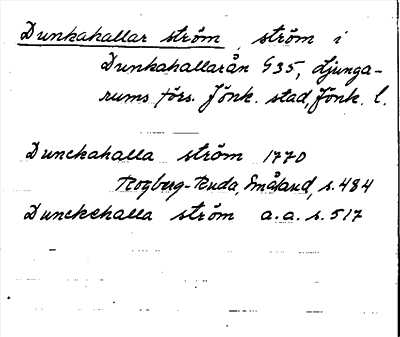 Dunkahallar ström, ström i
Dunkahallarån G35, Ljunga-
rums förs. Jönk. stad, Jönk. l.
Dunckahalla ström 1770
Rogberg-Ruda, Småland, s. 484
Dunckehalla ström a.a. s. 517